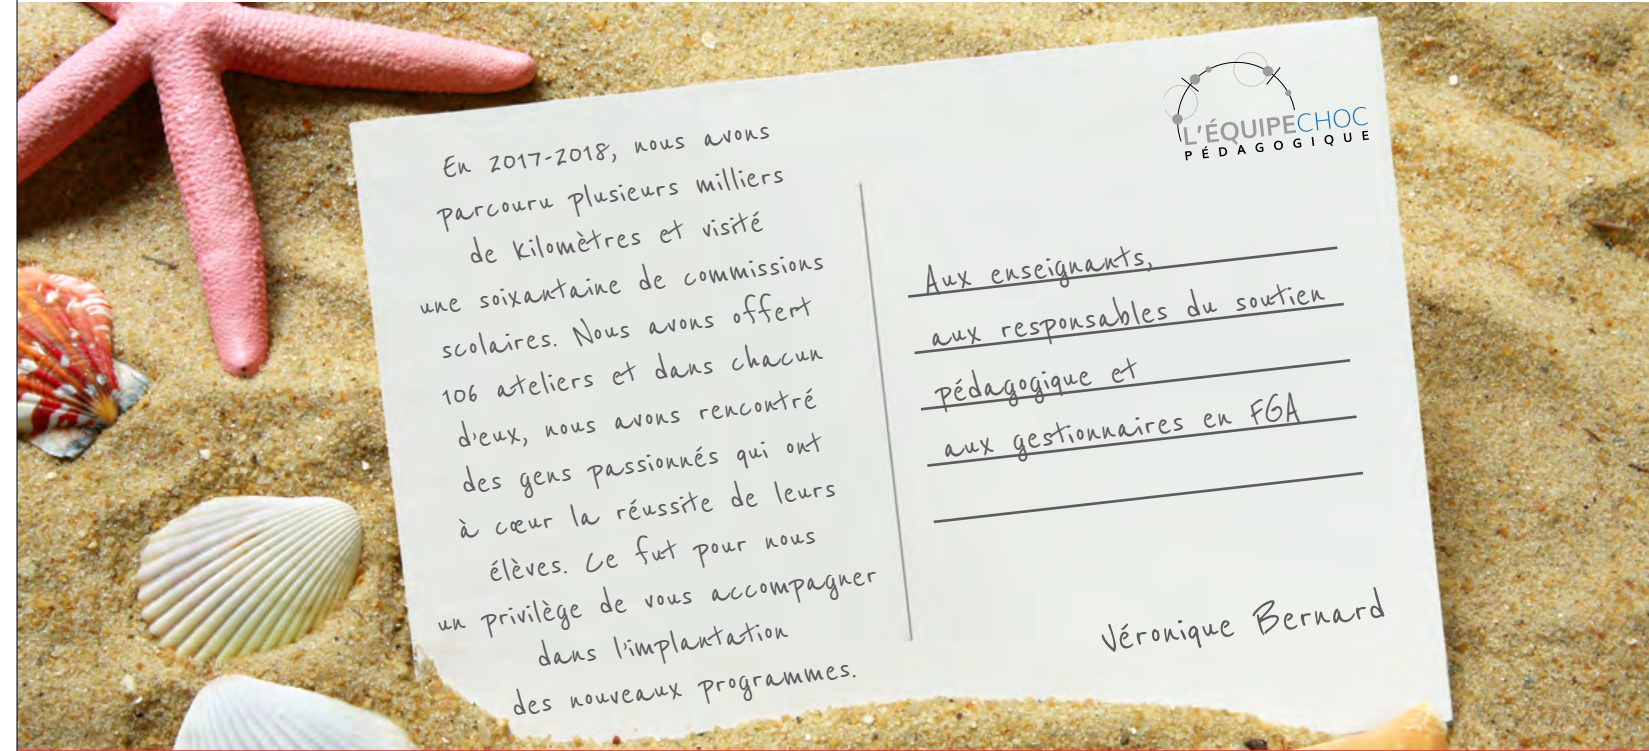 En 2017-2018, nous avons
parcouru plusieurs milliers
de kilomètres et visité
une soixantaine de commissions
scolaires. Nous avons offert
106 ateliers et dans chacun
d'eux, nous avons rencontré
des gens passionnés qui ont
à cœur la réussite de leurs
élèves. Ce fut pour nous
un privilège de vous accompagner
dans l'implantation
des nouveaux programmes.
L'ÉQUIPECHOC
PÉDAGOGIQUE
Aux enseignants,
aux responsables du soutien
pédagogique et
aux gestionnaires en FGA
Véronique Bernard